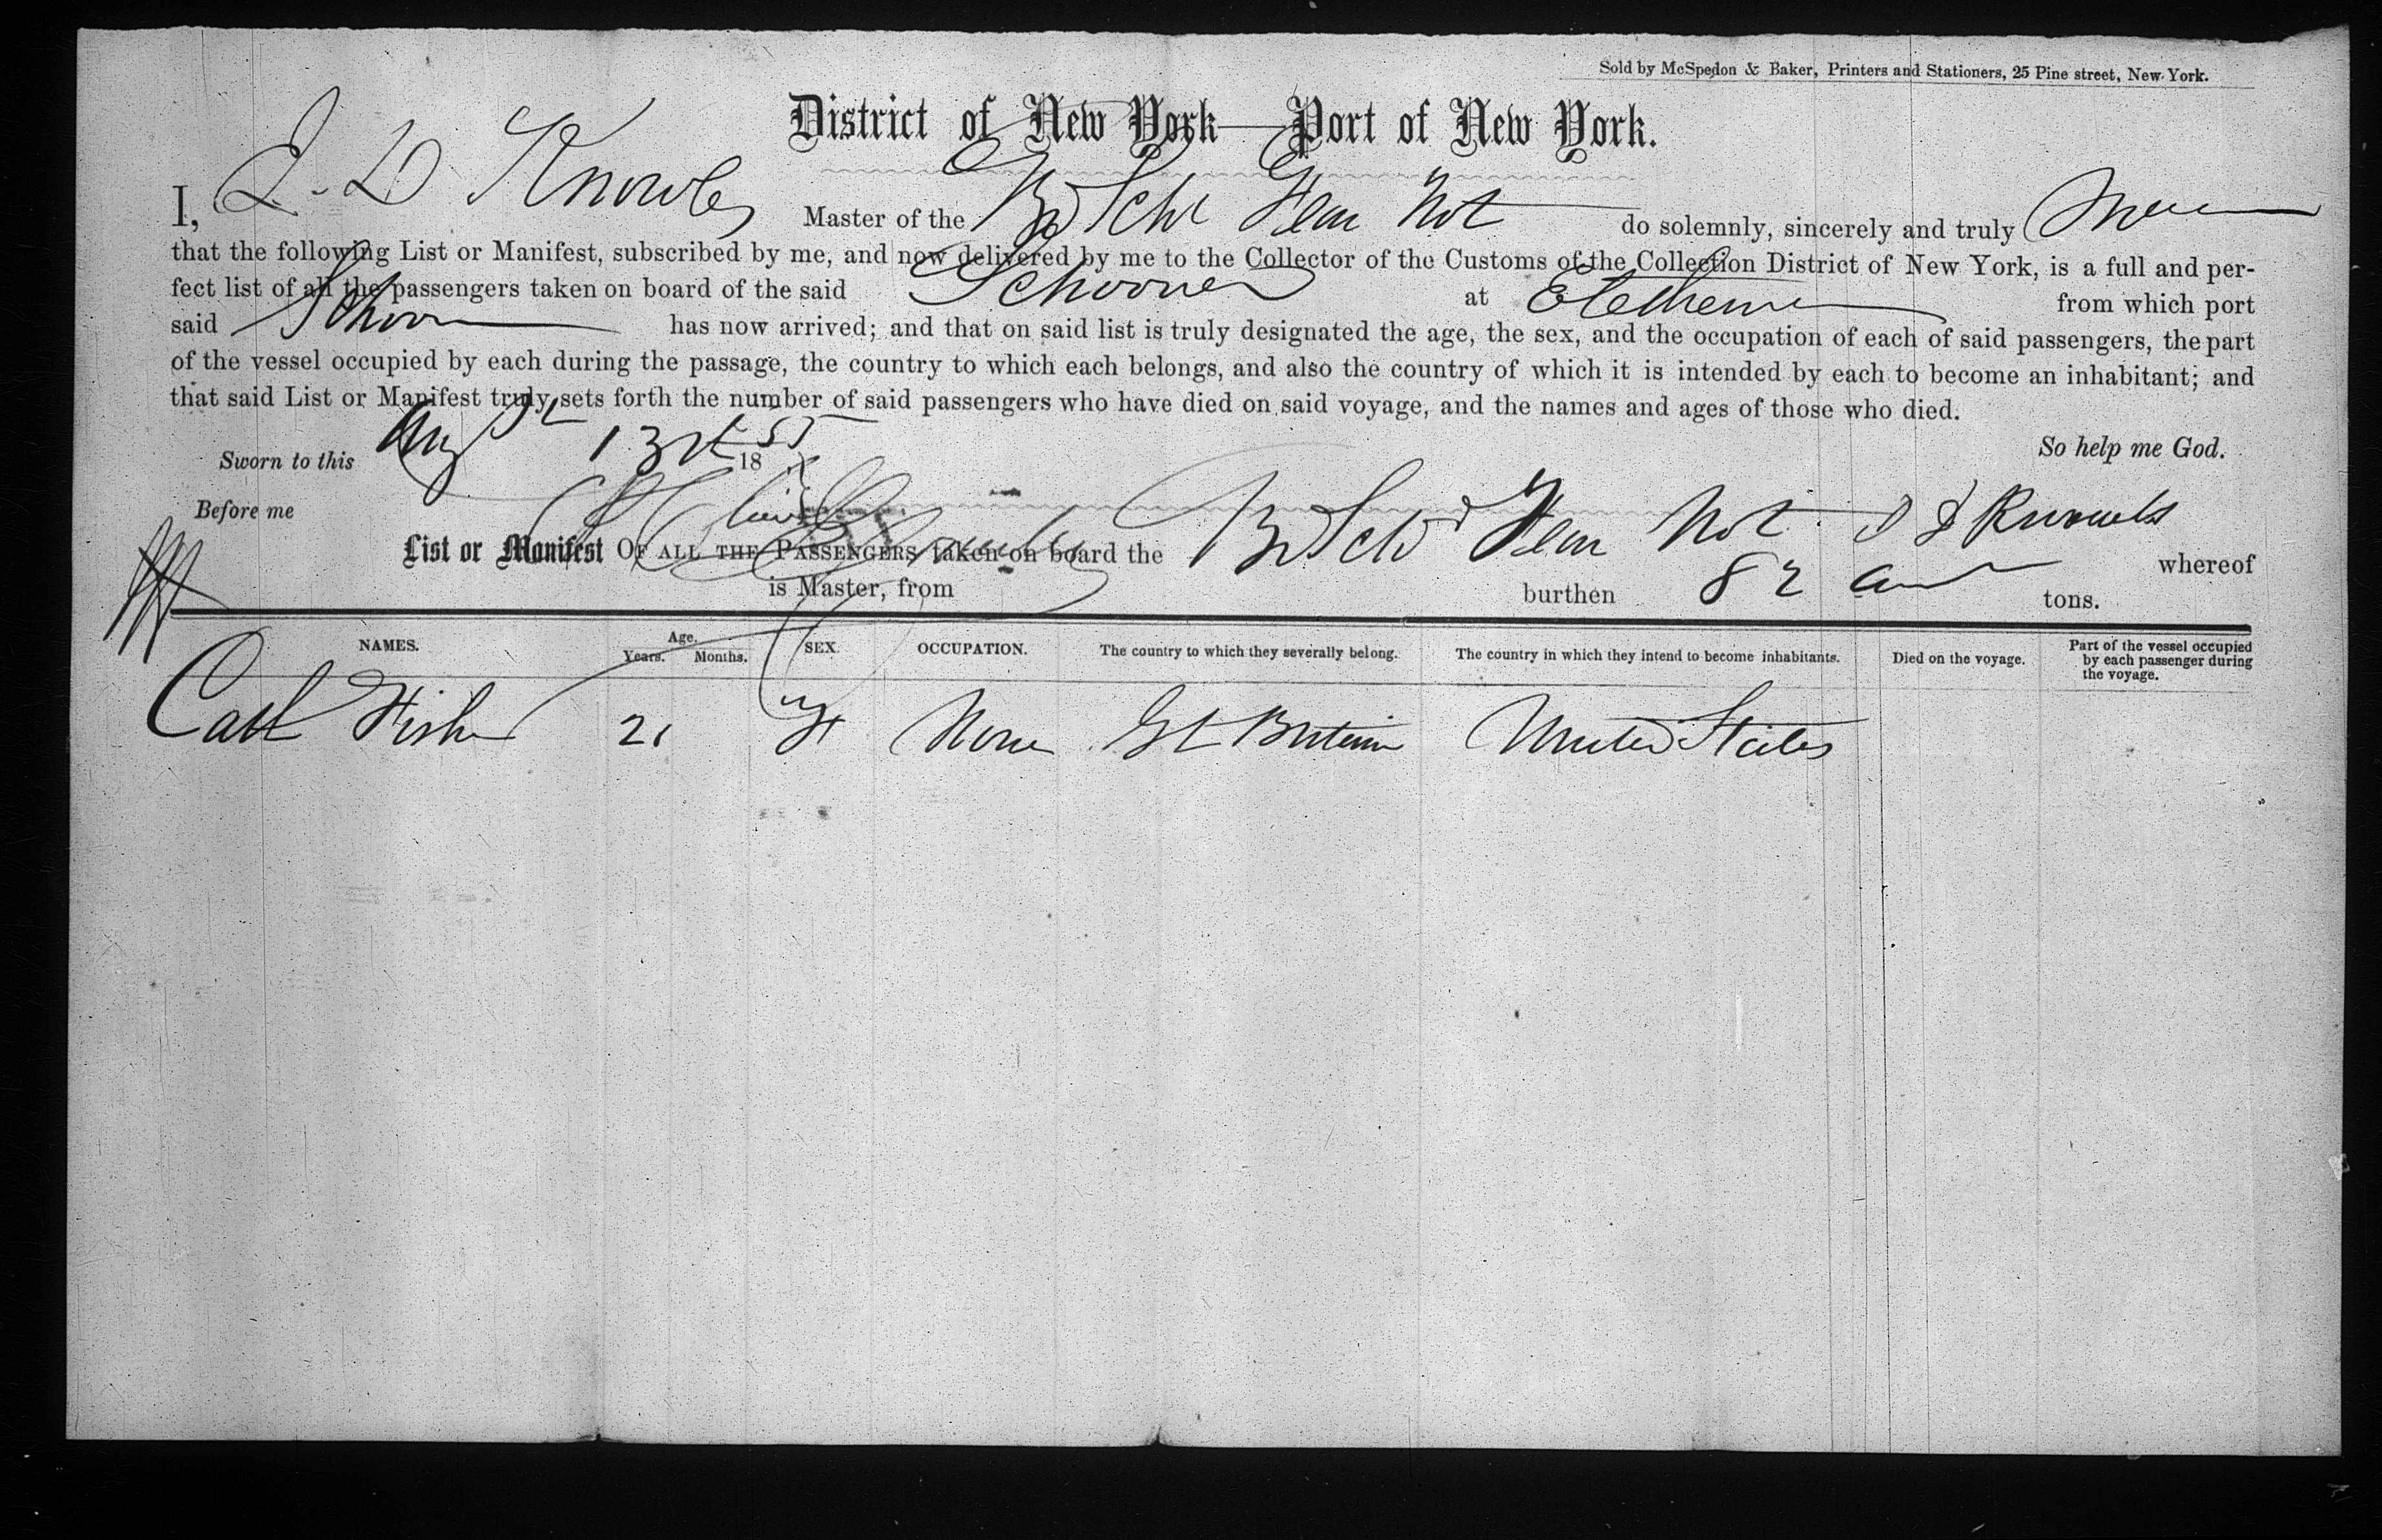 Sold by McSpedon & Baker, Printers and Stationers, 25 Pine street, New-York.
District of New York—Port of New York.
I, Knowles Master of the Br Schr Fear Not do solemnly, sincerely and truly Swear
that the following List or Manifest, subscribed by me, and now delivered by me to the Collector of the Customs of the Collection District of New York, is a full and per-
fect list of all the passengers taken on board of the said Schooner at from which port
said Schooner has now arrived; and that on said list is truly designated the age, the sex, and the occupation of each of said passengers, the part
of the vessel occupied by each during the passage, the country to which each belongs, and also the country of which it is intended by each to become an inhabitant; and
that said List or Manifest truly sets forth the number of said passengers who have died on said voyage, and the names and ages of those who died.
Sworn to this Augst 1855 So help me God.
Before me
List or Manifest OF ALL THE PASSENGERS taken on board the Br Schr Fear Not Knowles whereof
is Master, from burthen 82 tons.
NAMES. Age. Years. Months. SEX. OCCUPATION. The country to which they severally belong. The country in which they intend to become inhabitants. Died on the voyage. Part of the vessel occupied by each passenger during the voyage.
Fisher 21 None Gt Britain United States